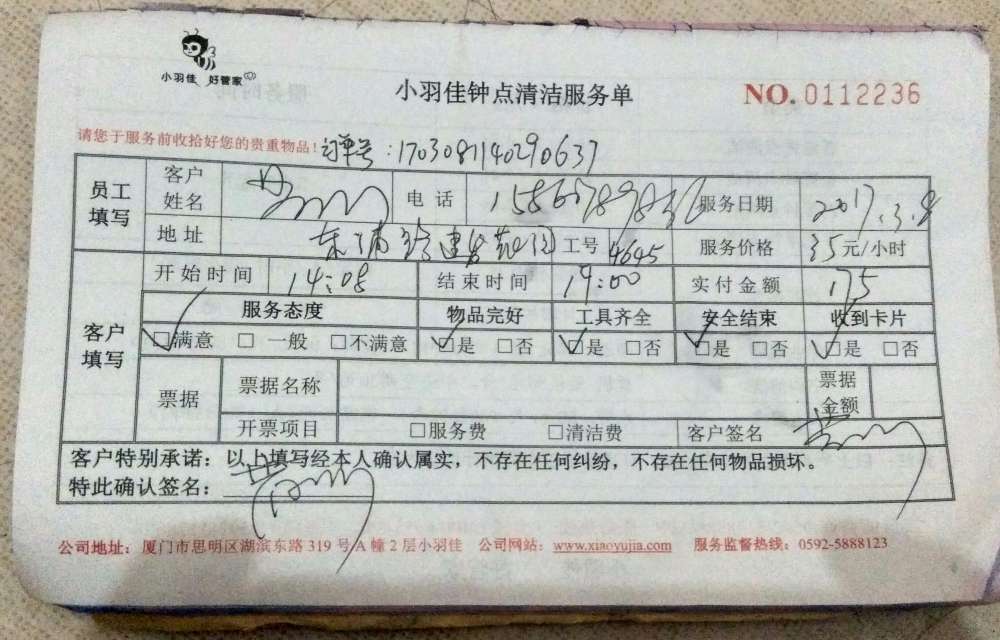 小羽佳 好管家
小羽佳钟点清洁服务单
NO. 0112236
请您于服务前收拾好您的贵重物品！订单号：1703081140290637
员工填写 客户姓名 电话 服务日期 2017.3.8
地址 工号 4645 服务价格 35元/小时
客户填写 开始时间 14:08 结束时间 19:00 实付金额 175
服务态度 物品完好 工具齐全 安全结束 收到卡片
☑满意 □一般 □不满意 ☑是 □否 ☑是 □否 ☑是 □否 ☑是 □否
票据 票据名称 票据金额
开票项目 □服务费 □清洁费 客户签名
客户特别承诺：以上填写经本人确认属实，不存在任何纠纷，不存在任何物品损坏。
特此确认签名：
公司地址：厦门市思明区湖滨东路 319 号 A 幢 2 层小羽佳 公司网站：www.xiaoyujia.com 服务监督热线：0592-5888123